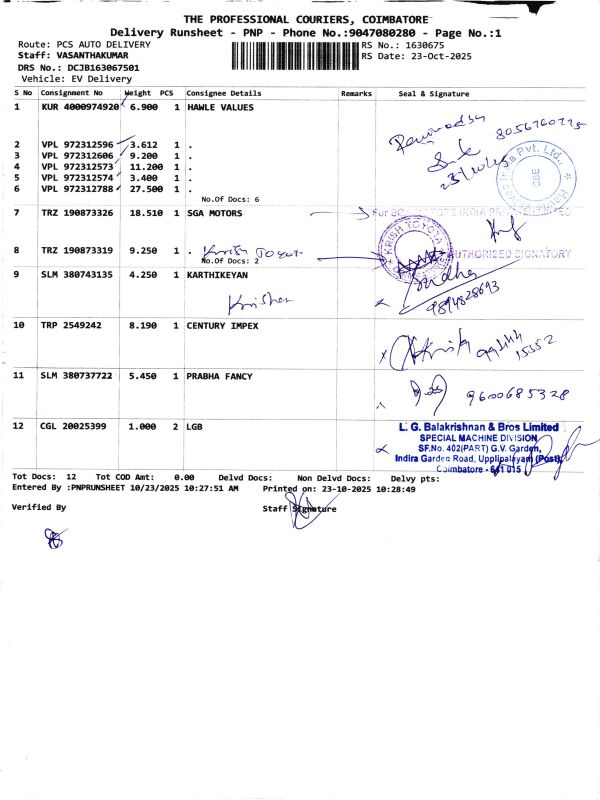 THE PROFESSIONAL COURIERS, COIMBATORE
Delivery Runsheet - PNP - Phone No.:9047080280 - Page No.:1
Route: PCS AUTO DELIVERY
RS No.: 1630675
Staff: VASANTHAKUMAR
RS Date: 23-Oct-2025
DRS No.: DCJB163067501
Vehicle: EV Delivery
S No Consignment No Weight PCS Consignee Details Remarks Seal & Signature
1 KUR 4000974920 6.900 1 HAWLE VALUES
8056760775
2 VPL 972312596 3.612 1 .
3 VPL 972312606 9.200 1 .
4 VPL 972312573 11.200 1 .
5 VPL 972312574 3.400 1 .
6 VPL 972312788 27.500 1 .
No.Of Docs: 6
Pvt. Ltd.,
CBE
7 TRZ 190873326 18.510 1 SGA MOTORS
KRISH TOYOTA
8 TRZ 190873319 9.250 1 .
No.Of Docs: 2
AUTHORISED SIGNATORY
9 SLM 380743135 4.250 1 KARTHIKEYAN
9894828693
10 TRP 2549242 8.190 1 CENTURY IMPEX
15352
11 SLM 380737722 5.450 1 PRABHA FANCY
9600685328
12 CGL 20025399 1.000 2 LGB
L. G. Balakrishnan & Bros Limited
SPECIAL MACHINE DIVISION
SF.No. 402(PART) G.V. Garden,
Indira Garden Road, Upplipalayam (Post),
Coimbatore - 641 015
Tot Docs: 12 Tot COD Amt: 0.00 Delvd Docs: Non Delvd Docs: Delvy pts:
Entered By :PNPRUNSHEET 10/23/2025 10:27:51 AM Printed on: 23-10-2025 10:28:49
Verified By Staff Signature